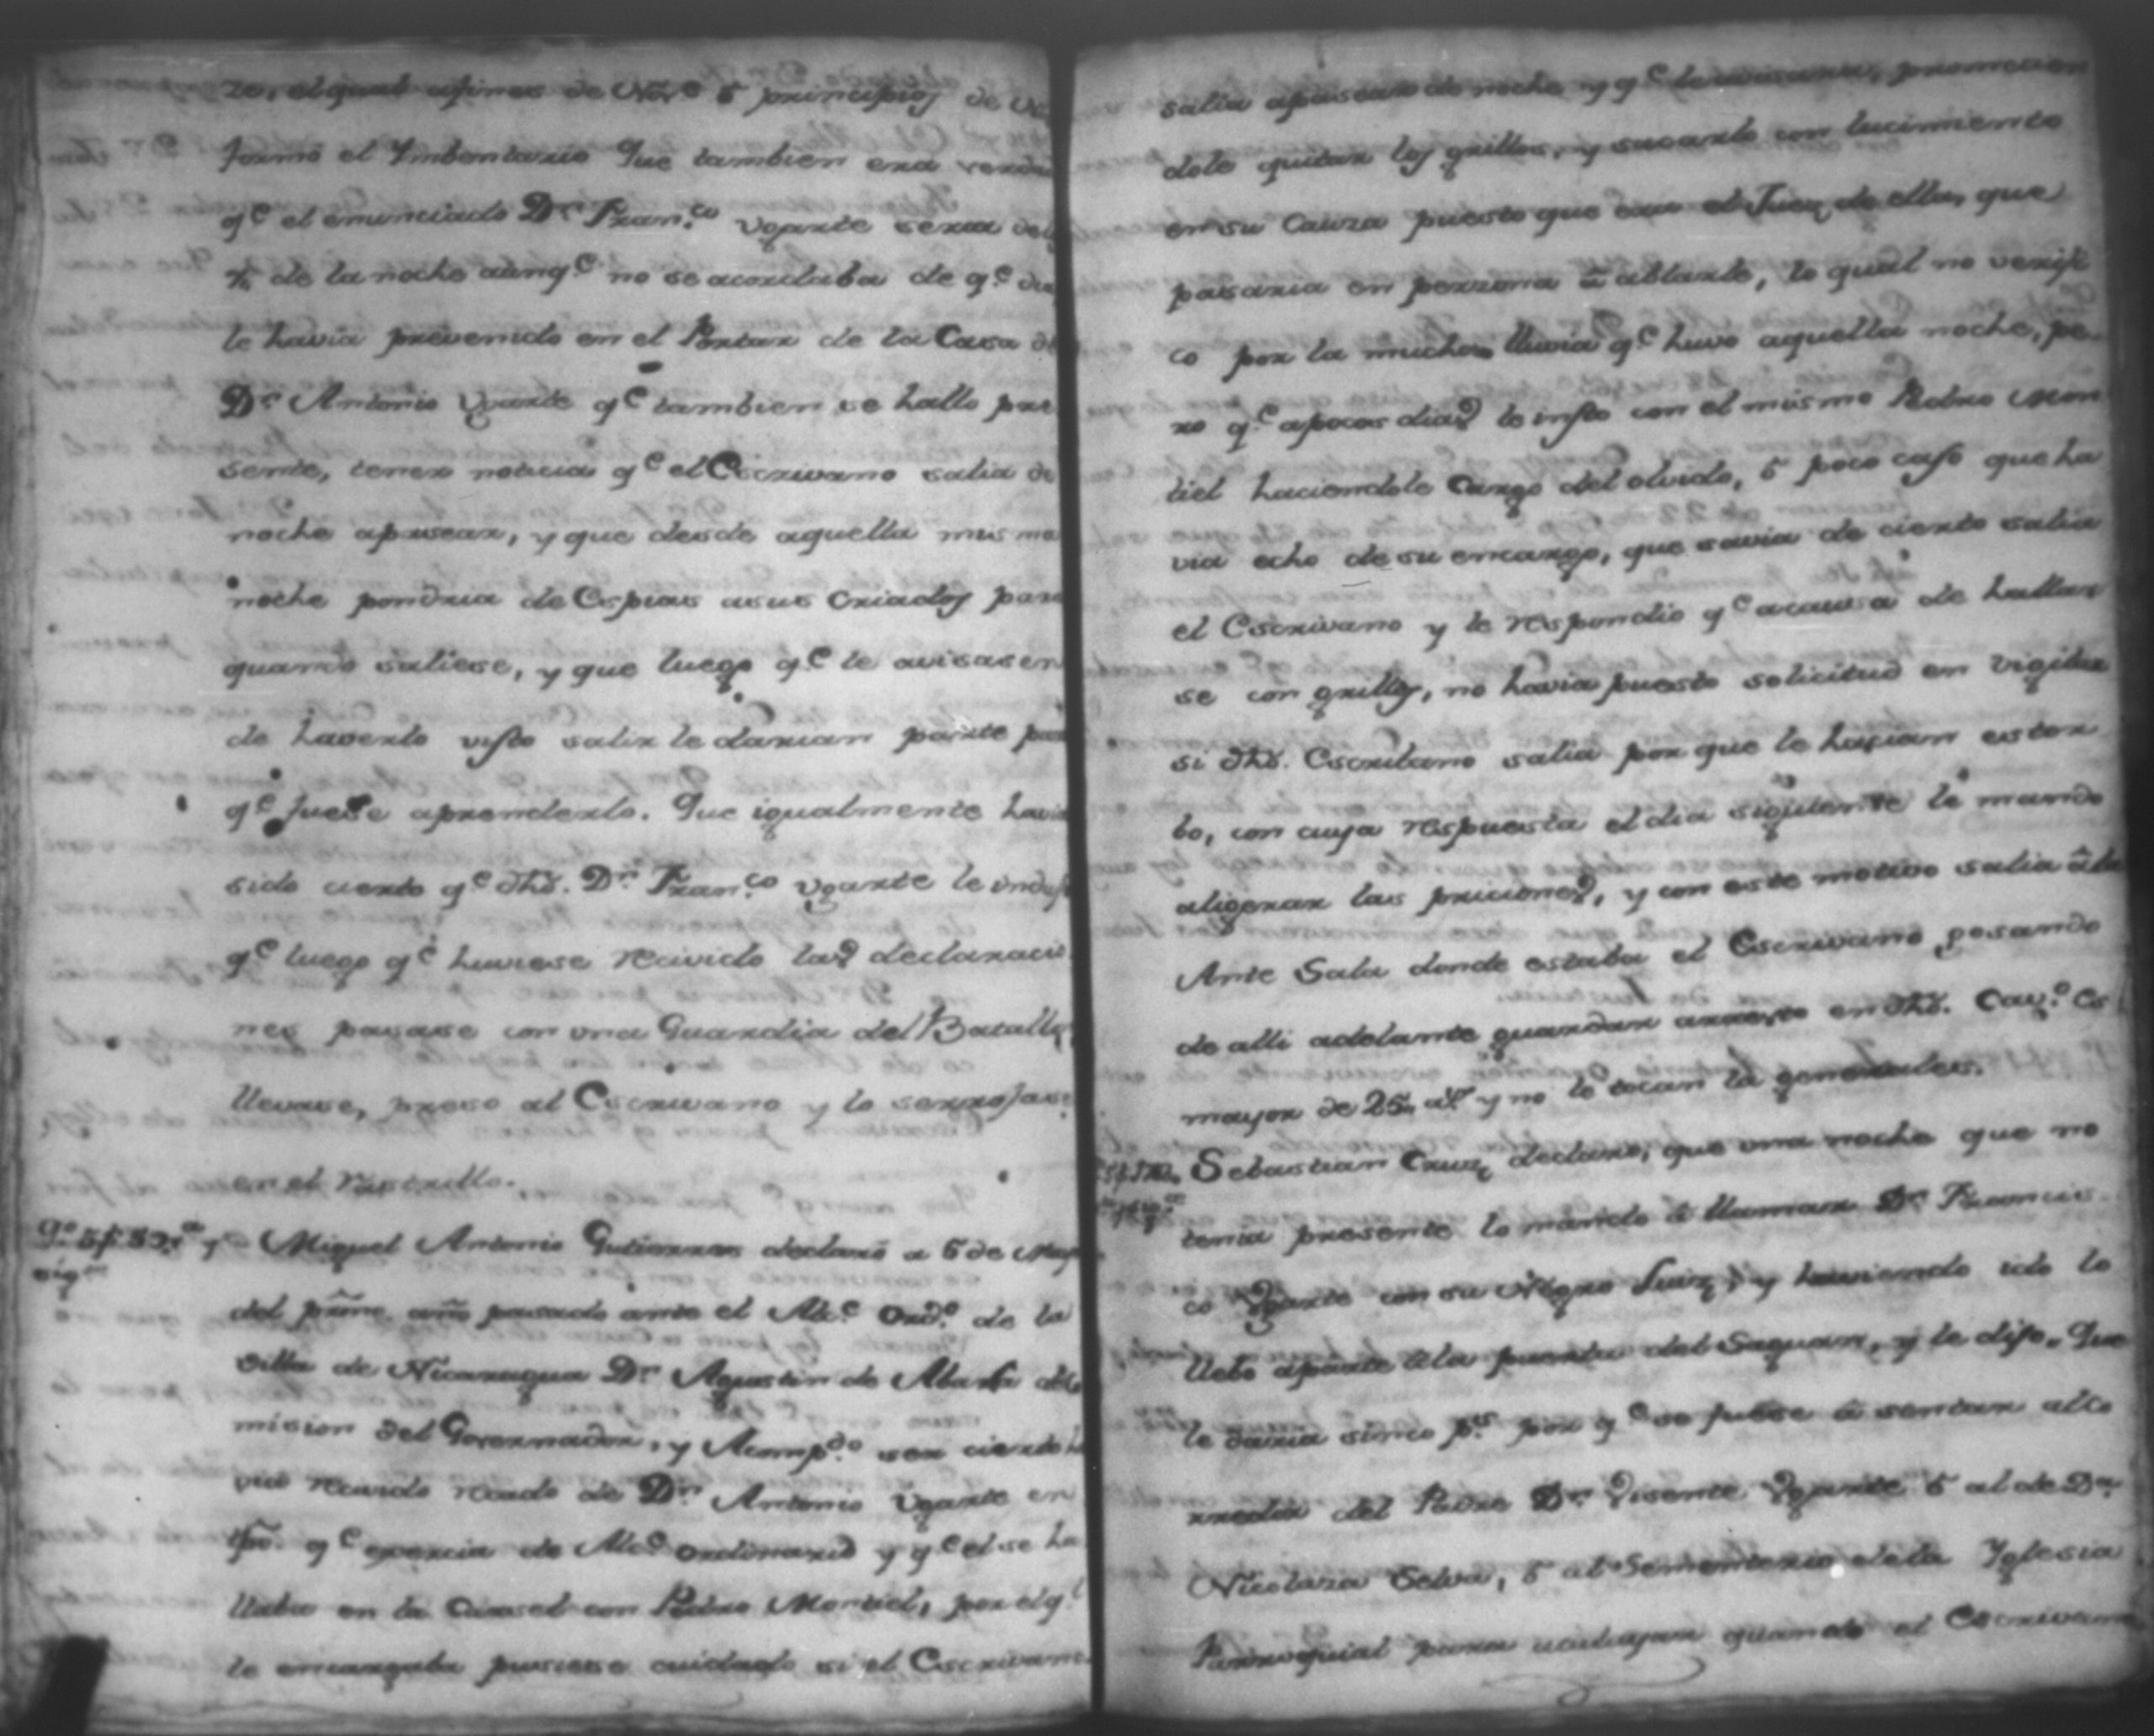 ze, el qual afines de Nov.e ó principios de
formó el Ymbentario Que tambien era verda
q.e el enunciado D.n Fran.co Vgarte seria
de la noche aunq.e no se acordaba de q.e dia
le havia prevenido en el Portar de la Casa de
D.n Antonio Vgarte q.e tambien se hallo pre
sente, tener noticia q.e el Escrivano salia de
noche apasear, y que desde aquella misma
noche pondria de Espias asus Criados para
quando saliese, y que luego q.e le avisasen
de haverlo visto salir le darian parte para
q.e fuese aprenderlo. Que igualmente havia
sido cierto q.e dho. D.n Fran.co Vgarte le
q.e luego q.e huviese recivido las declaracio
nes pasase con una Guardia del Batallo
llevase, preso al Escrivano y lo serrojase
en el rastrillo.
Miguel Antonio Gutierres declaró a 6 de May
del año pasado ante el Alc.e Ord.o de la
Villa de Nicaragua D.n Agustin de
mision del Governador, y Acomp.do ser cierto ha
via recivido recado de D.n Antonio Vgarte en
tpo. q.e exercia de Alc.e ordinario y q.e el se ha
llaba en la Carsel con Pedro Montiel, por el q.l
le encargaba pusiese cuidado si el Escrivano
salia apasear de noche y q.e le avisara, prometien
dole quitar los grillos, y sacarlo con lucimiento
en su Cauza puesto que era el Juez de ella, que
pasaria en perzona á ablarle, lo qual no verifi
co por la mucha lluvia q.e huvo aquella noche, pe
ro q.e apocos dias le insto con el mismo Pedro Mon
tiel haciendole Cargo del olvido, ó poco caso que ha
via echo de su encargo, que savia de cierto salia
el Escrivano y le respondio q.e acausa de hallar
se con grillos, no havia puesto solicitud en vigilar
si dho. Escribano salia por que le hasian estor
bo, con cuya respuesta el dia siguiente le mando
aligerar las priciones, y con este motivo salia á la
Ante Sala donde estaba el Escrivano pesando
de alli adelante guardar arresto en dho. Cav.o Es
mayor de 25 a.s y no le tocan la generales.
Sebastian Cruz declaro, que una noche que no
tenia presente lo mando á llamar D.n Francis
co Vgarte con su Negro Luiz, y haviendo ido lo
llebo aparte á la puerta del Saguan, y le dijo. Que
le daria sinco p.s por q.e se fuese á sentar alco
rredor del Padre D.n Visente Vgarte ó al de D.a
Nicolasa Selva, ó al Sementerio de la Yglesia
Parroquial para atalayar quando el Escrivano